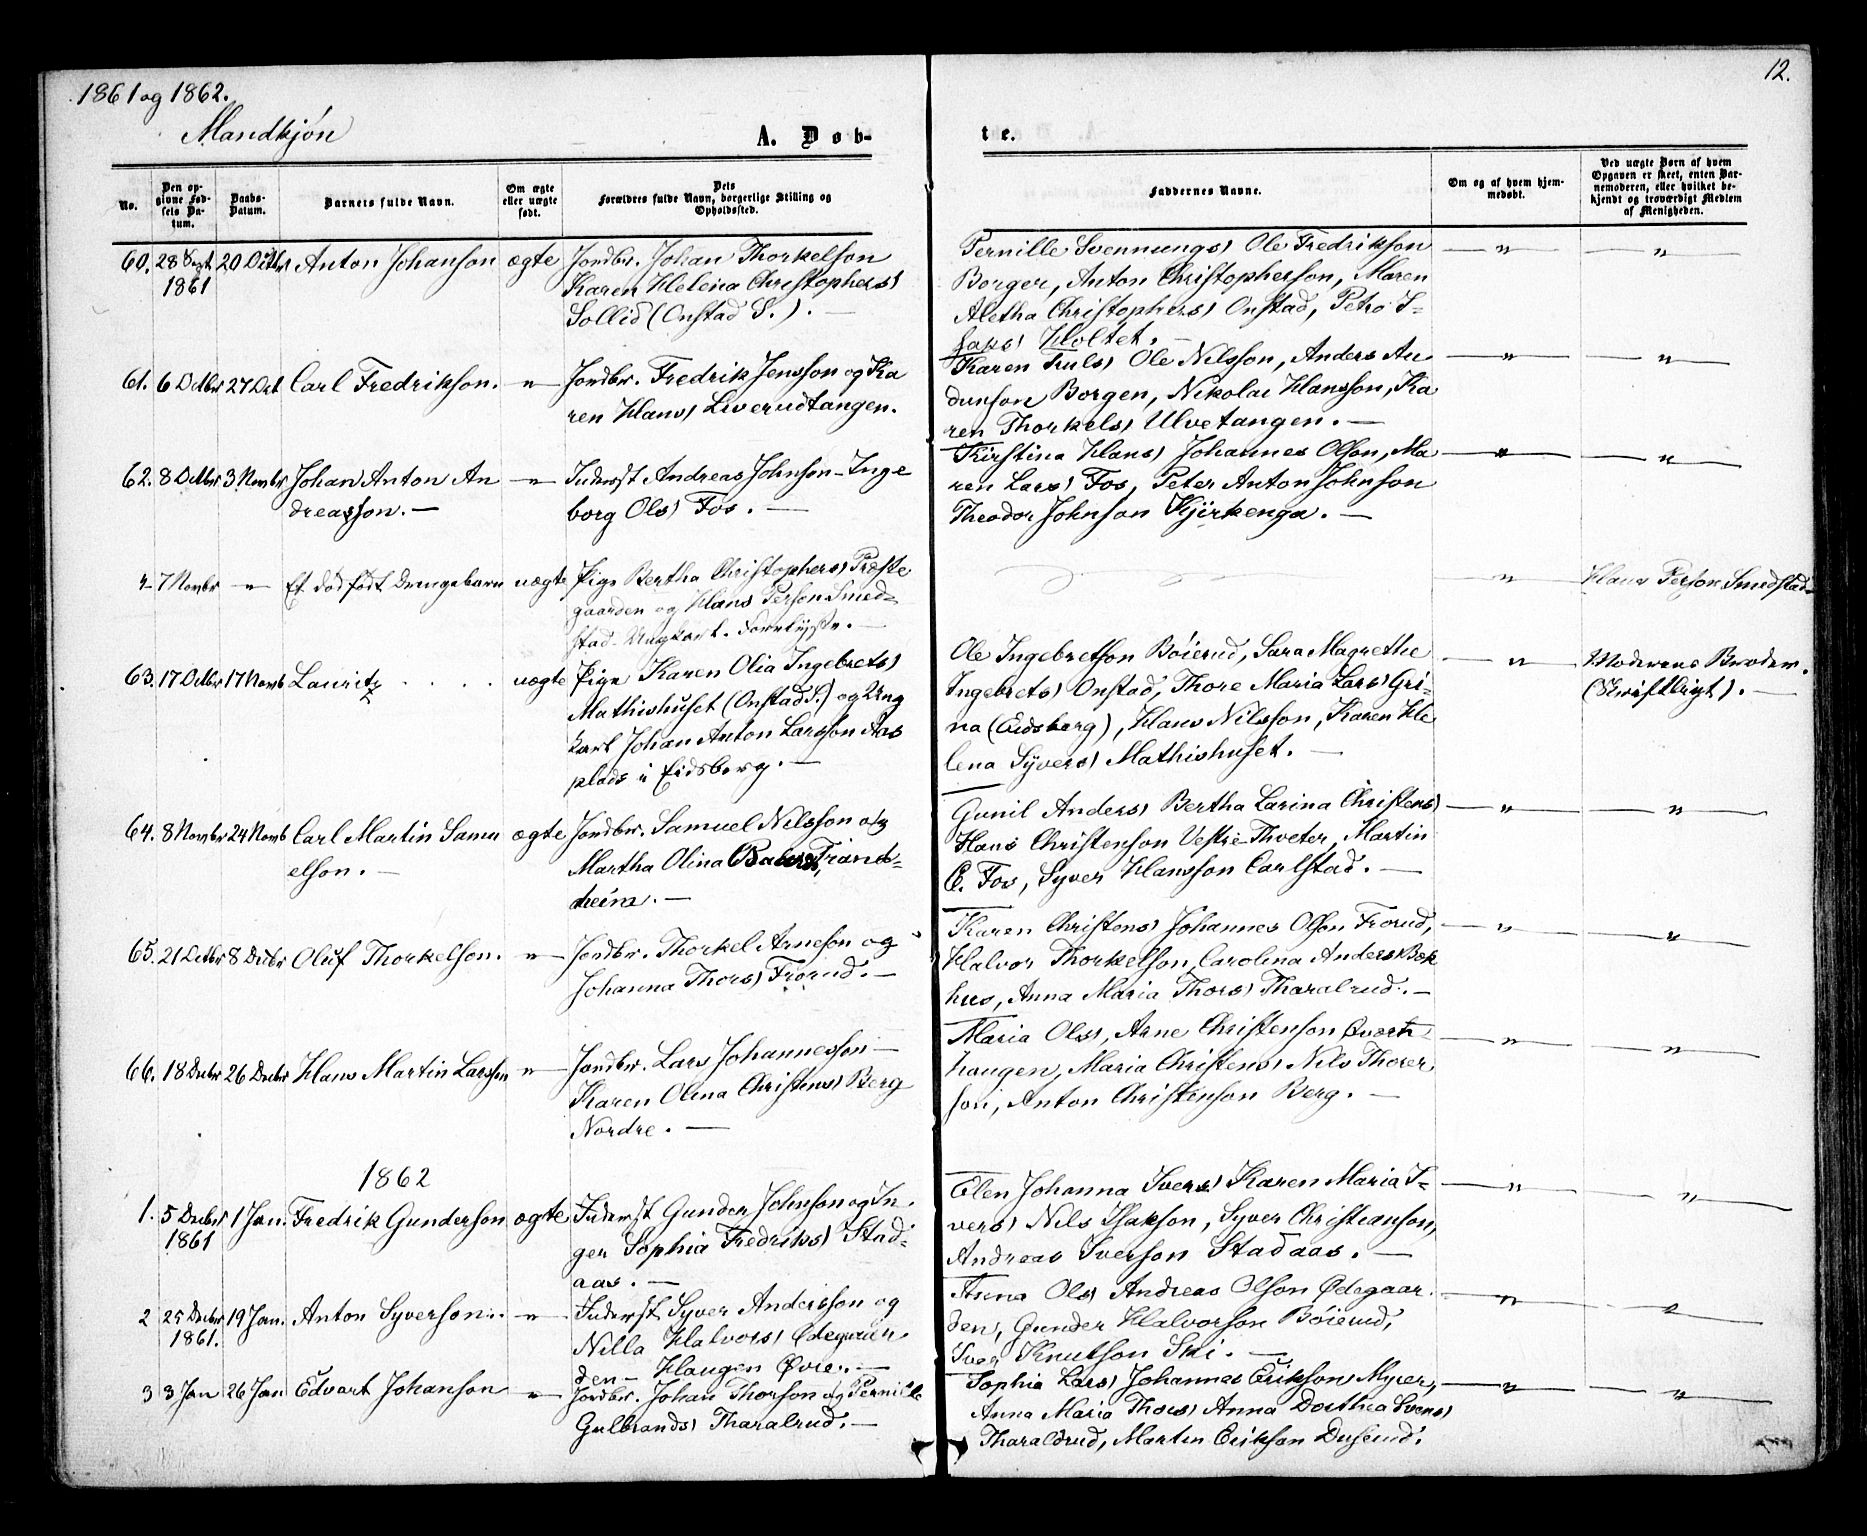 1861 og 1862.
12.
Mandkjön
A. Døb-
te.
No.
Den op-
givne Fød-
sels Da-
tum.
Daabs-
Datum.
Barnets fulde Navn.
Om ægte
eller uægte
født.
Dets
Forældres fulde Navn, borgerlige Stilling og
Opholdssted.
Faddernes Navne.
Om og af hvem hjem-
medøbt.
Ved uægte Børn af hvem
Opgaven er skeet, enten Bar-
nemoderen, eller hvilket be-
kjendt og troværdigt Medlem
af Menigheden.
60. 28 Sept 20 Octbr Anton Johanson ægte Jordbr. Johan Thorkelson
1861 Karen Helena Christophers)
Sollid (Onstad S.). —
Pernille Svennungs) Ole Fredrikson — " — — " —
Borger, Anton Christopherson, Maren
Aletha Christophers) Onstad, Petro I-
saks) Holtet. —
61. 6 Octbr 27 Oct Carl Fredrikson. — " — Jordbr. Fredrik Jensson og Ka
ren Hans) Liverudtangen.
Karen Truls) Ole Nilsson, Anders An — " — — " —
dunson Borgen, Nikolai Hansson, Ka
ren Thorkels) Ulvetangen. —
62. 8 Octbr 3 Novbr Johan Anton An — " — Inderst Andreas Johnson — Inge
dreasson. — borg Ols) Fos. —
Kirstina Hans) Johannes Olson, Ma — " — — " —
ren Lars) Fos, Peter Anton Johnson
Theodor Johnson Kjirkenga. —
4 7 Novbr — " — Et dødfødt Drengebarn uægte Pige Bertha Christophers) Præste
gaarden og Hans Person Smed-
stad Ungkarl.
— " — Hans Person Smedstad
63. 17 Octbr 17 Novb Lauritz . . . . uægte Pige Karen Olia Ingebrets)
Mathishuset (Onstad S.) og Ung
karl Johan Anton Larsson Aas
plads i Eidsberg. —
Ole Ingebretson Böierud, Sara Magrethe — " — Moderens Broder.
Ingebrets) Onstad, Thore Maria Lars) Gri- (Skriftligt). —
na (Eidsberg), Hans Nilsson, Karen He
lena Syvers) Mathishuset. —
64. 8 Novbr 24 Novb Carl Martin Samu ægte Jordbr. Samuel Nilsson og
elson. — Martha Olina Trand-
heim. —
Gunil Anders) Bertha Larina Christens) — " — — " —
Hans Christenson Vestre Thveter, Martin
C. Fos, Syver Hansson Carlstad. —
65. 21 Octbr 8 Decbr Oluf Thorkelson. — " — Jordbr. Thorkel Arneson og
Johanna Thors) Frorud. —
Karen Christens) Johannes Olson Frorud, — " — — " —
Halvor Thorkelson, Carolina Anders) Bak
hus, Anna Maria Thors) Tharalrud. —
66. 18 Decbr 26 Decbr Hans Martin Larsson — " — Jordbr. Lars Johannesson —
Karen Olina Christens) Berg
Nordre. —
Maria Ols), Arne Christenson Qværn — " — — " —
haugen, Maria Christens) Nils Thorer
son, Anton Christenson Berg. —
1862
1. 5 Decbr 1 Jan. Fredrik Gunderson ægte Inderst Gunder Johnson og In.
1861 ger Sophia Fredriks) Stad-
aas. —
Elen Johanna Ivers) Karen Maria I- — " — — " —
vers) Nils Isakson, Syver Christianson,
Andreas Iverson Stadaas. —
2 25 Decbr 19 Jan. Anton Syverson. . — " — Inderst Syver Andersson og
1861. Nilla Halvors) Ødegaar
den — Haugen Øvre. —
Anna Ols) Andreas Olson Ødegaar. — " — — " —
den, Gunder Halvorson Böierud,
Iver Knutson Ski. —
3 3 Jan 26 Jan Edvart Johanson — " — Jordbr. Johan Thorson og Pernille
Gulbrands) Tharalrud. —
Sophia Lars) Johannes Erikson Myrer, — " — — " —
Anna Maria Thors) Anna Dorthea Svens)
Tharaldrud, Martin Erikson Duserud.